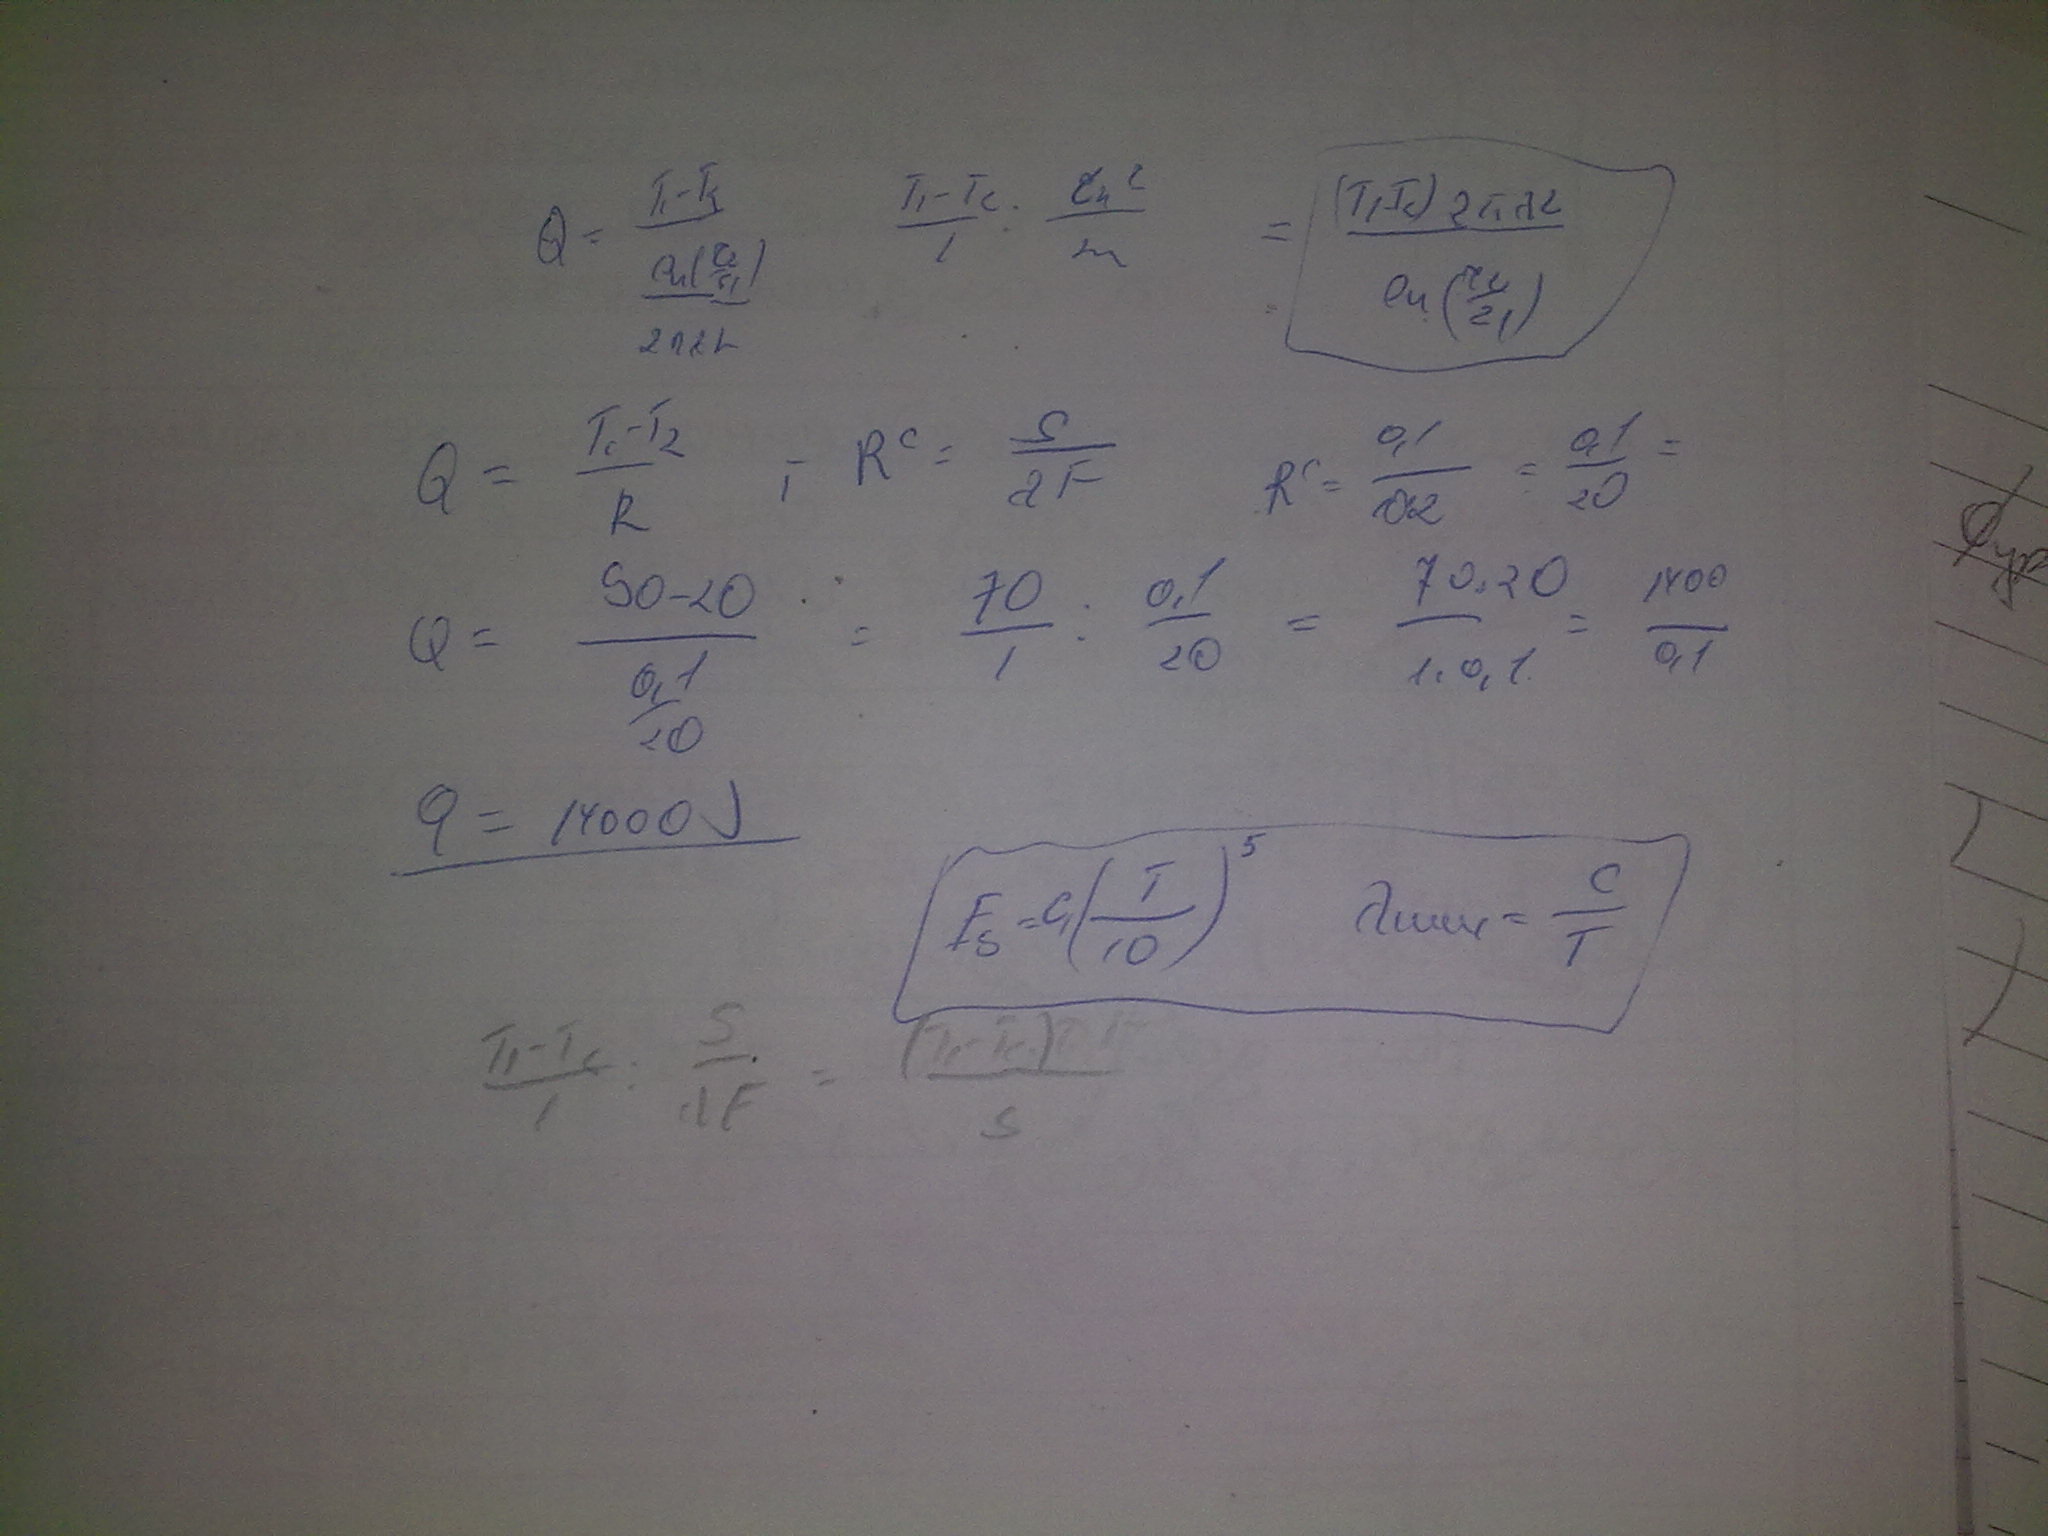 Q = (T₁-T₂)/(ln(r₂/r₁)/2πλL) (T₁-T₂)/1 · = (T₁-T₂)2πλL/ln(r₂/r₁)
Q = (T₁-T₂)/R ; R^c = S/λF R^c = 0,1/10·2 = 0,1/20 =
Q = (90-20)/(0,1/20) = 70/1 : 0,1/20 = 70·20/1·0,1 = 1400/0,1
Q = 14000 J
E_s = C₁(T/10)⁵ λ = C/T
(T₁-T₂)/1 : S/λF = (T₁-T₂)λF/S